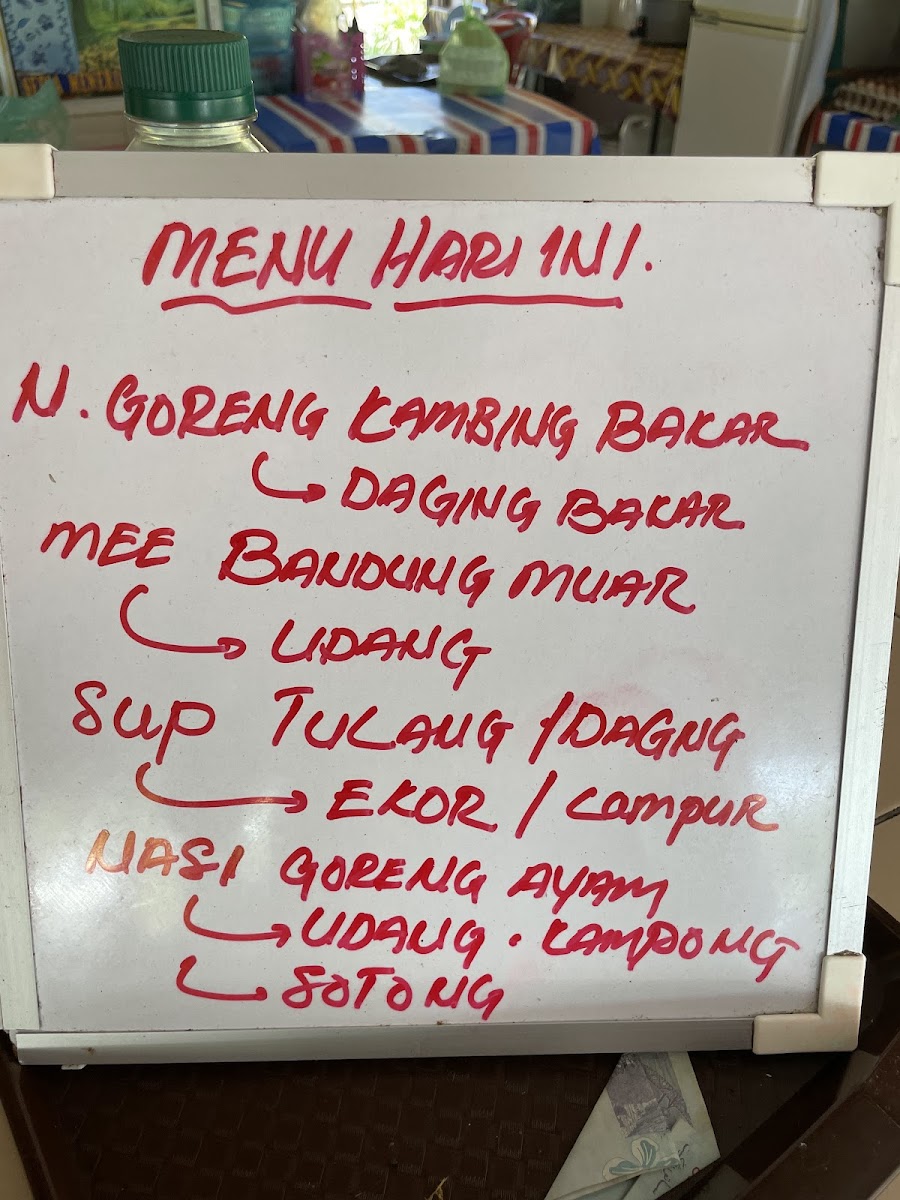 MENU HARI INI.
N. GORENG KAMBING BAKAR
DAGING BAKAR
MEE BANDUNG MUAR
UDANG
SUP TULANG / DAGNG
EKOR / CAMPUR
NASI GORENG AYAM
UDANG . KAMPONG
SOTONG